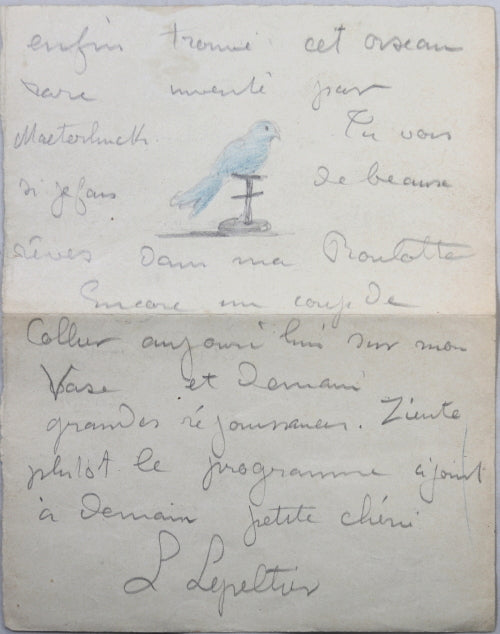 enfin trouvé cet oiseau
rare inventé par
Maeterlinck. Tu vois
si je fais de beaux
rêves dans ma Roulotte
Encore un coup de
Collier aujourd'hui sur mon
Vase et demain
grandes réjouissances. Ziente
plutot le programme ajoint
à demain petite chéri
L Lepeltier